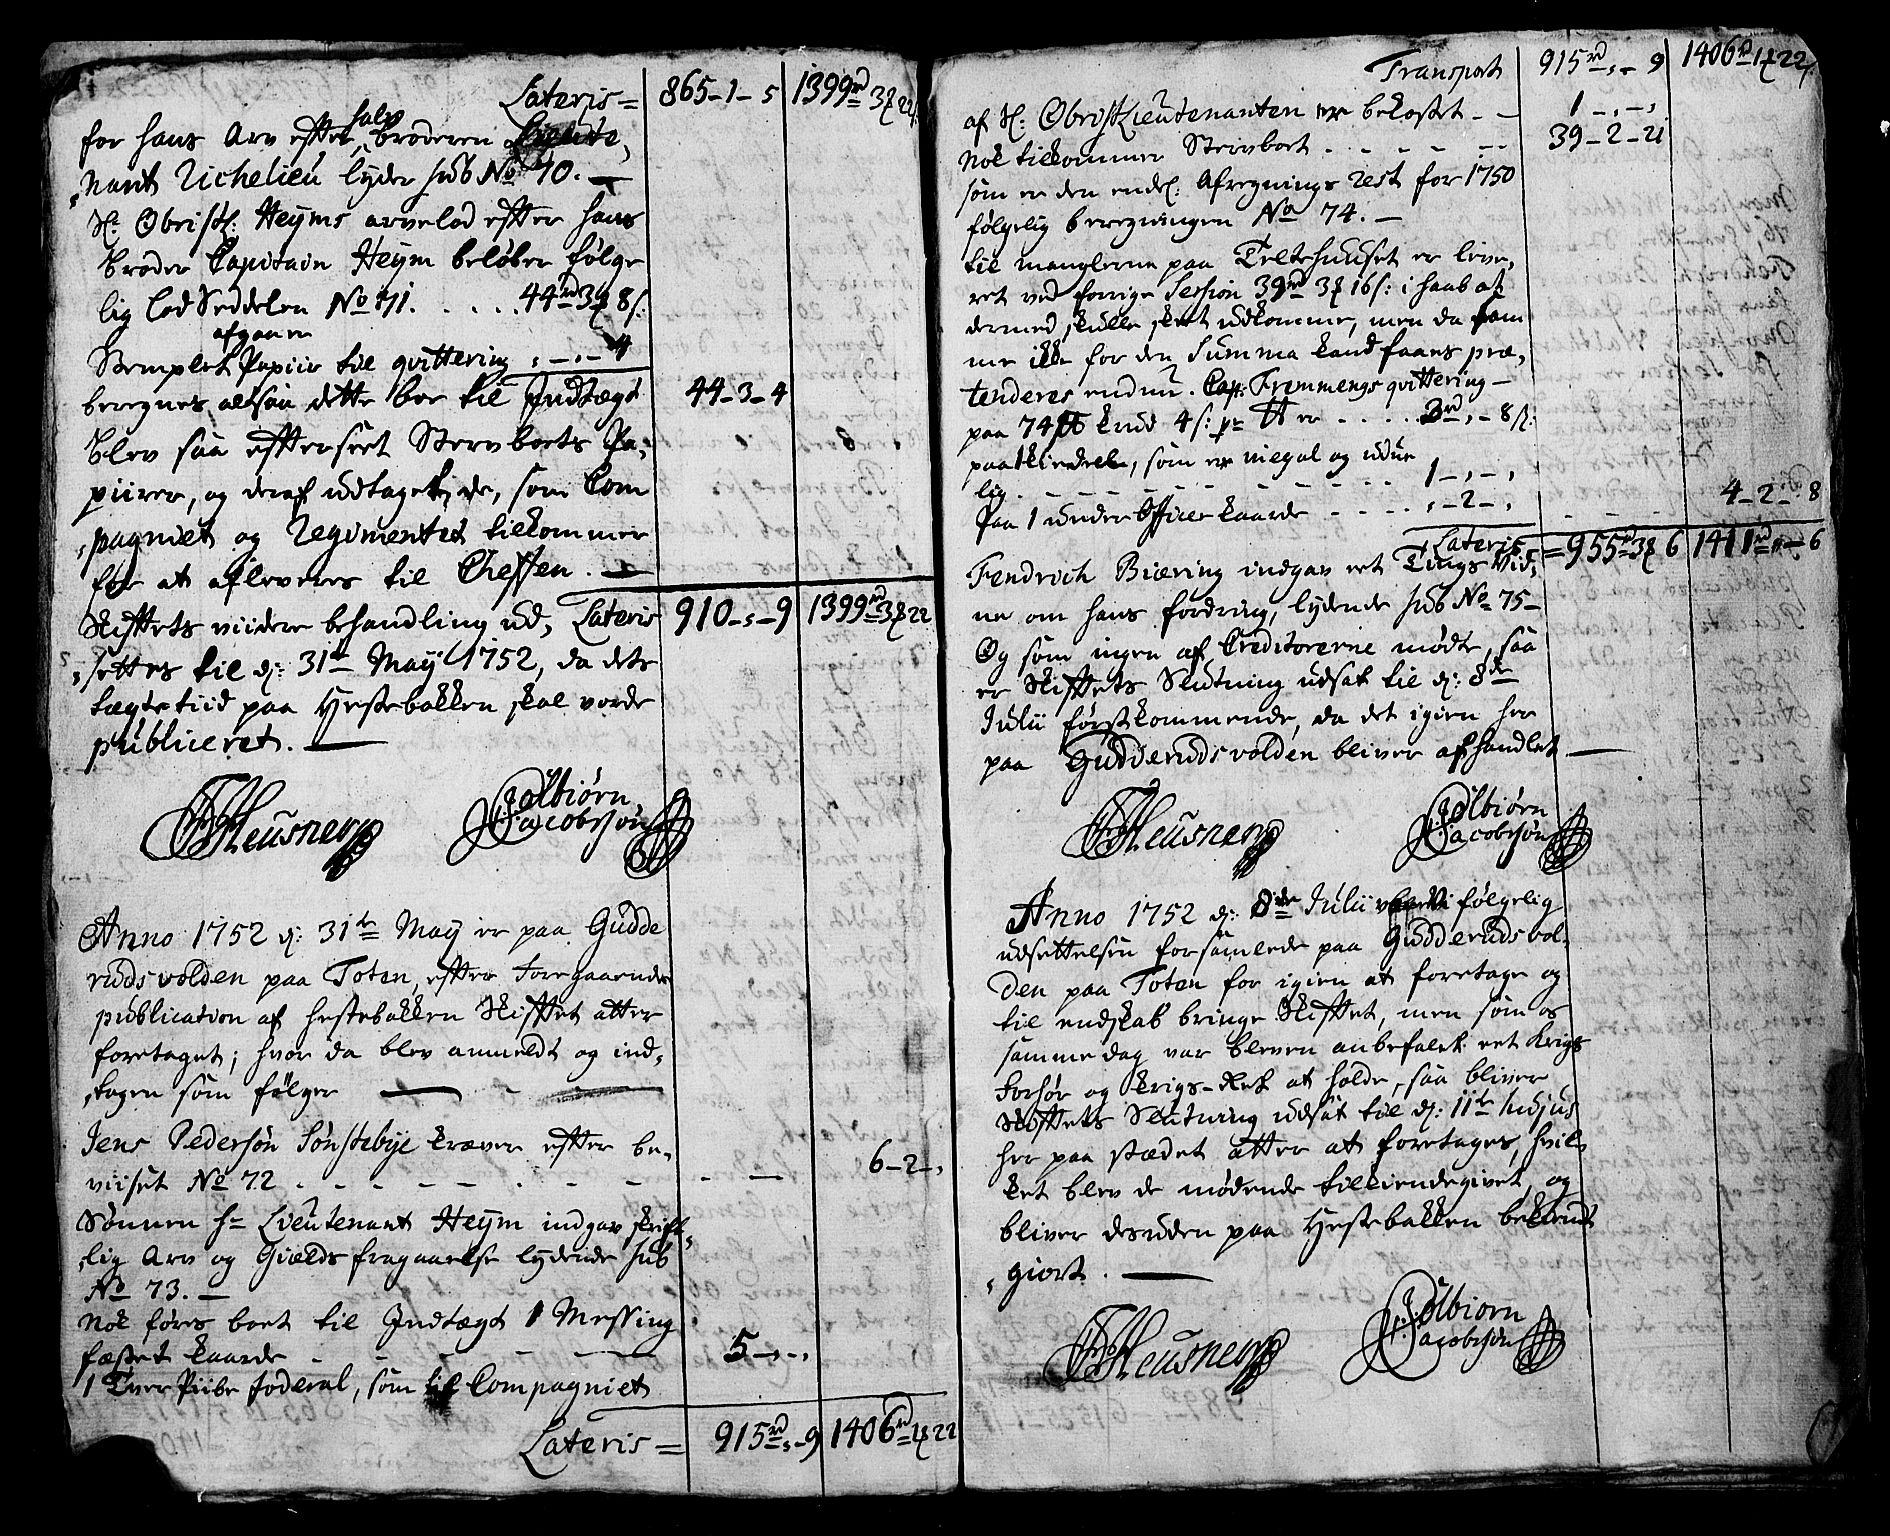 Lateris = 865-1-5 1399rd 3 22
for hans Arv efter halv broderen
nant Richelieu lyder sub No 70.
H: Obristl: Heyms arvelod efter hans
broder Capitain Heym beløber følge
lig lod Seddelen No 71. . . . . 44rd 3 8s:
afgaar
Stemplet Papiir til qvittering - „ - 4
beregnes altsaa dette her til Indtægt 44-3-4
blev saa efterseet Sterv boets Pa-
piirer, og deraf udtaget de, som Com
pagniet og Regimentet tilkommer
for at afleveres til Cheffen.
Skifftets viidere behandling ud- Lateris 910-„-9 1399rd 3 22
settes til d: 31te Maÿ 1752, da dets
tægte tiid paa Hestebakken skal vorde
publiceret.
Heusner
Colbiørn
Jacobsøn
Anno 1752 d: 31te Maÿ er paa Gudde
ruds volden paa Toten, efter foregaaende
publication af hestebakken Skifftet atter
foretaget; hvor da blev anmeldt og ind-
tagen som følger
Jens Pedersøn Sønstebye kræver efter be-
viiset No 72 6-2-„
Sønnen hr Lieutenant Heÿm indgav skrift-
lig Arv og Gields fragaaelse lydende sub
No 73.
Nok føres boet til Indtægt 1 Messing
fæstet kaarde 5-„-„
1 Tver Piibe foderal, som til Compagniet
Lateris = 915rd-„-9 1406rd 1 22
Transport 915rd-„-9 1406rd 1 22
af H: ObristLieutenanten er bekostet - - 1-„-„
Nok tilkommer Stervboet 39-2-21
som er den endel: Afregnings Rest for 1750
følgelig beregningen No 74.
til manglerne paa Teltehuuset er leve-
ret ved forrige Session 39rd 3 16s: i haab at
dermed skulle skeet udkomme, men da sam
me ikke for den Summa kand faaes præ-
tenderes endnu. Cap: Frommengs qvittering
paa 74 ℔ Knud 4s: pr ℔ er . . . . 3rd-„-8s:
paatkiendel, som er megal og udue
lig. 1-„-„
Paa 1 under Officer kaarde „-2-„ 4-2-8
Lateris = 955rd 3 6 1411rd-„-6
Fendrich Biering indgav eet Tings Vid-
ne om hans fordring, lydende sub No 75-
Og som ingen af Creditorerne mødte, saa
er Skifftets Slutning udsat til d: 8de
Julii førstkommende, da det igien her
paa Gudderuds volden bliver afhandlet
Heusner
Colbiørn
Jacobsøn
Anno 1752 d: 8de Julii følgelig
udsettelsen forsamlede paa Gudderuds vol-
den paa Toten for igien at foretage og
til endskab bringe Skifftet, men som os
samme dag var bleven anbefalet eet Krigs
forhør og Krigs-Ret at holde, saa bliver
Skifftets Slutning udsat til d: 11te hujus
her paa stædet atter at foretages, hvil
ket blev de mødende tilkiendegivet, og
bliver desuden paa Hestebakken bekiendt
giort.
Heusner
Colbiørn
Jacobsøn